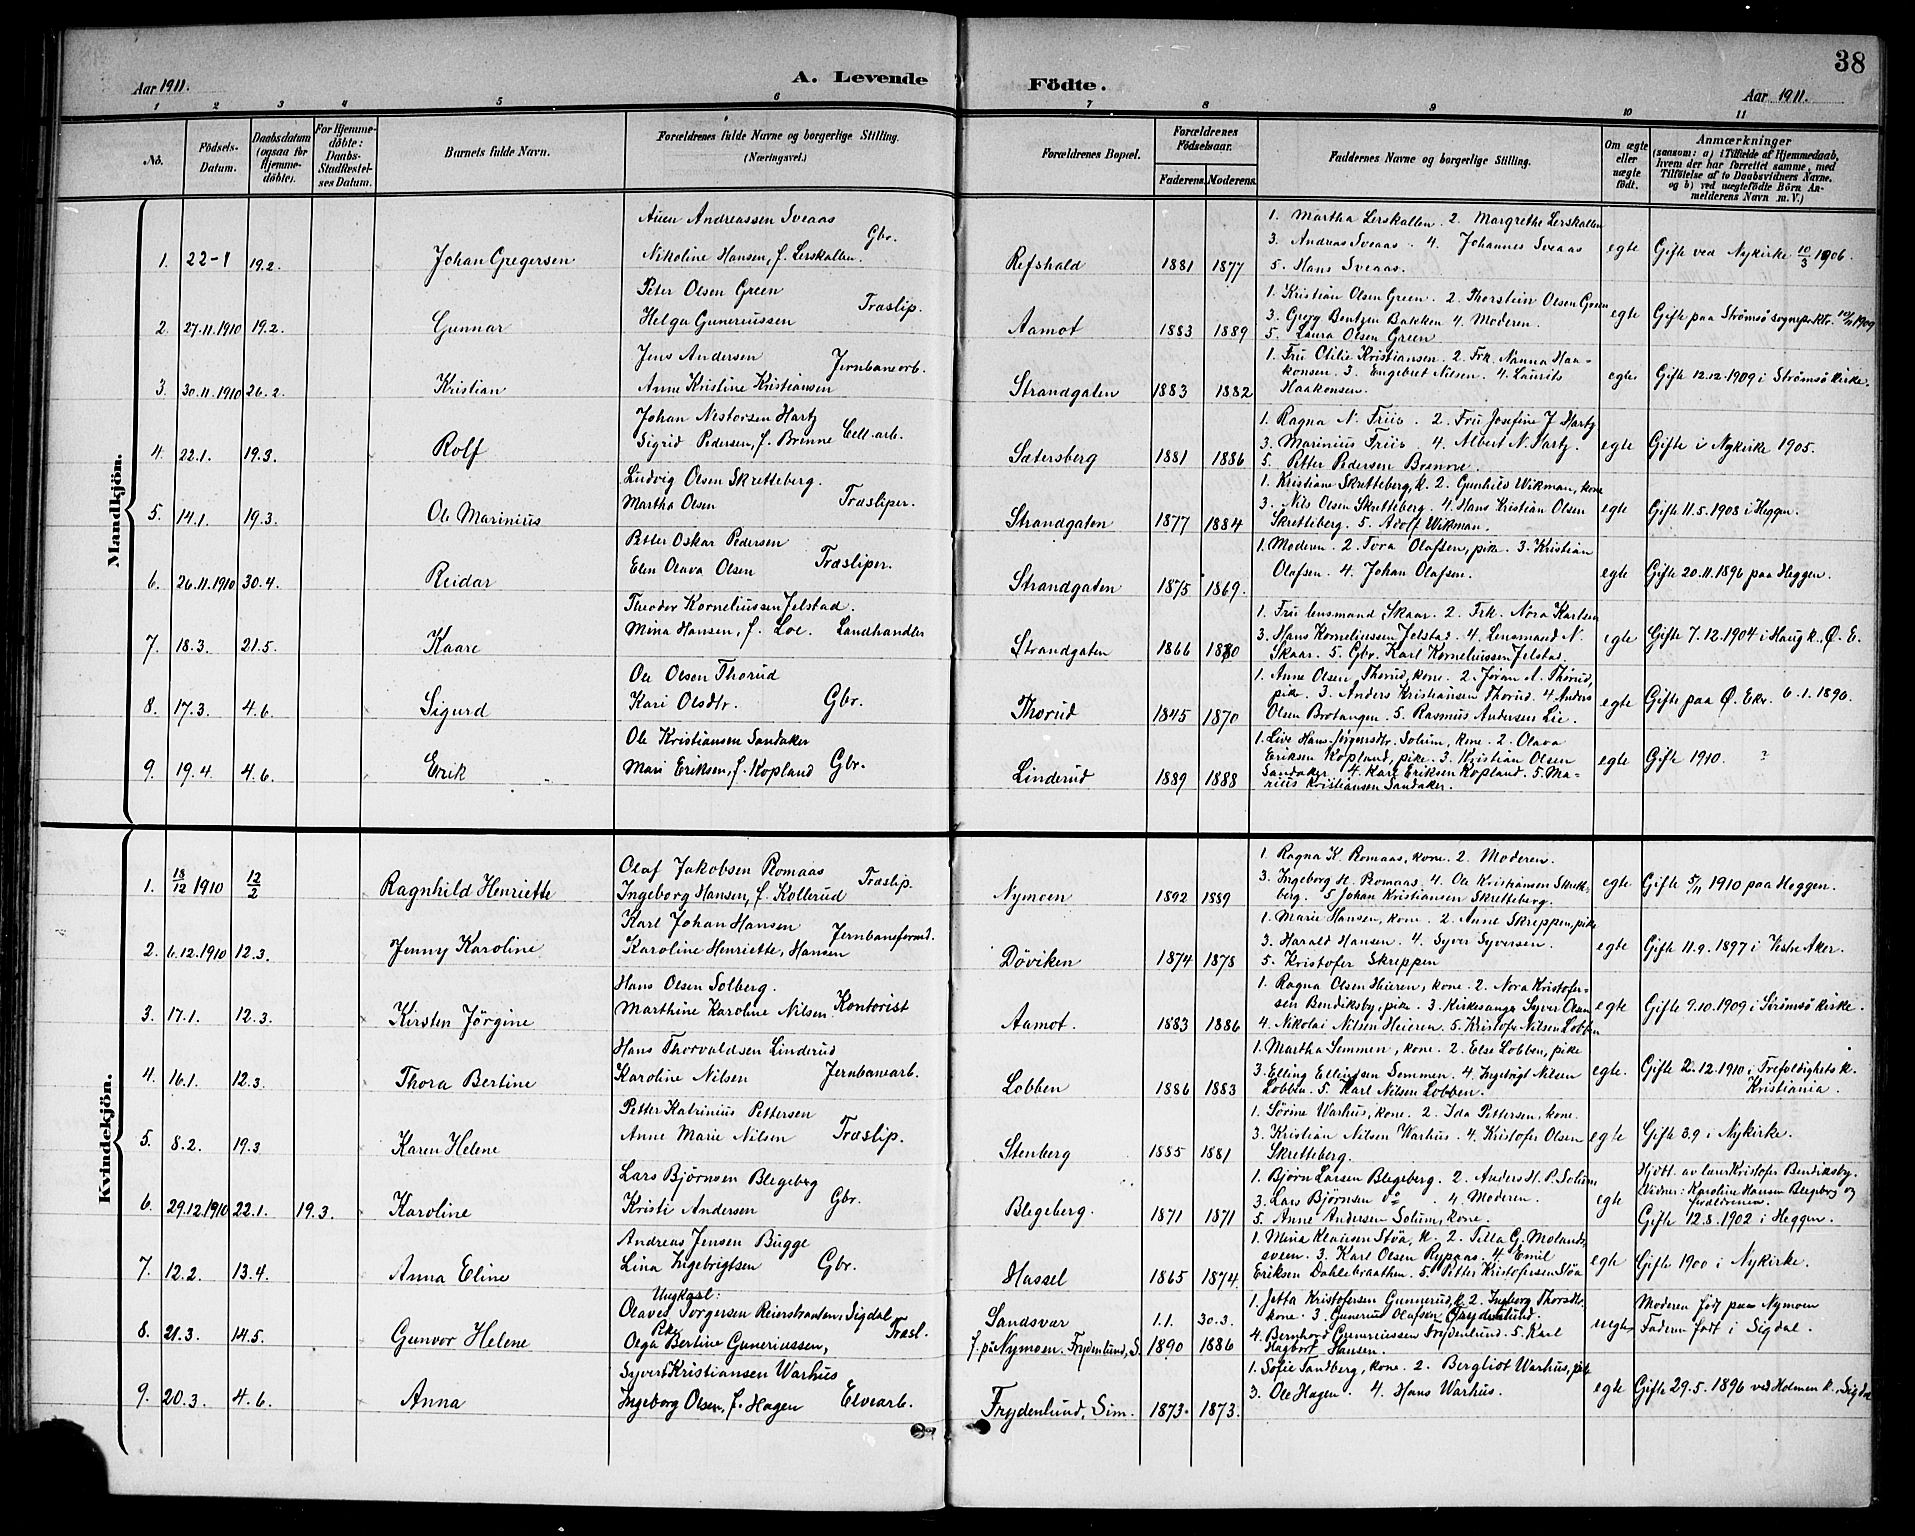 38
Aar 1911.
A. Levende
Födte.
Aar 1911.
1 2 3 4 5 6 7 8 9 10 11
No.
Födsels-
Datum.
Daabsdatum
(ogsaa for
Hjemme-
döbte).
For Hjemme-
döbte:
Daabs-
Stadfæstel-
ses Datum.
Barnets fulde Navn.
Forældrenes fulde Navne og borgerlige Stilling.
(Næringsvei.)
Forældrenes Bopæl.
Forældrenes
Födselsaar.
Faderens.
Moderens.
Faddernes Navne og borgerlige Stilling.
Om ægte
eller
uægte
födt.
Anmærkninger
(saasom: a) i Tilfælde af Hjemmedaab,
hvem der har forrettet samme, med
Tilföielse af to Daabsvidners Navne,
og b) ved uægtefödte Börn An-
melderens Navn m. V.)
Mandkjön.
1. 22-1 19.2. Johan Gregersen
Andreassen Sveaas
Nikoline Hansen, f. Lerskallen. Gbr.
Refshald 1881 1877
1. Martha Lerskallen 2. Margrethe Lerskallen
3. Andreas Sveaas. 4. Johannes Sveaas
5. Hans Sveaas.
egte Gifte ved Nykirke 10/3 1906.
2. 27.11.1910 19.2. Gunnar
Peter Olsen Green
Helga Guneriussen Træslip.
Aamot 1883 1889
1. Kristian Olsen Green. 2. Thorstein Olsen Green
3. Georg Bentzen Bakken 4. Moderen.
5. Laura Olsen Green
egte Gifte paa Strømsø sognepr.ktr. 1909
3. 30.11.1910 26.2. Kristian
Jens Andersen
Anne Kristine Kristiansen Jernbanearb.
Strandgaten 1883 1882
1. Fru Otilie Kristiansen. 2. Frk. Nanna Haa-
konsen. 3. Engebret Nilsen. 4. Laurits
Haakonsen.
egte Gifte 12.12.1909 i Strømsø kirke.
4. 22.1. 19.3. Rolf
Johan Nestorsen Hartz
Sigrid Pedersen, f. Brenne Cell.arb.
Sætersberg 1881 1886
1. Ragna N. Friis. 2. Fru Josefine J Hartz
3. Marinius Friis. 4. Albert N. Hartz.
5. Petter Pedersen Brenne.
egte Gifte i Nykirke 1905.
5. 14.1. 19.3. Ole Marinius
Ludvig Olsen Skretteberg.
Martha Olsen Træsliper.
Strandgaten 1877 1884
1. Kristiane Skretteberg, k. 2. Gunhild Wikman, kone
3. Nils Olsen Skretteberg. 4. Hans Kristian Olsen
Skretteberg. 5. Adolf Wikman.
egte Gifte 11.5.1903 i Heggen.
6. 26.11.1910 30.4. Reidar
Petter Oskar Pedersen
Elen Olava Olsen Træsliper.
Strandgaten 1875 1869.
1. Moderen. 2. Tora Olafsen, pike. 3. Kristian
Olafsen. 4. Johan Olafsen.
egte Gifte 20.11.1896 paa Heggen.
7. 18.3. 21.5. Kaare
Theodor Korneliussen Jelstad.
Mina Hansen, f. Loe. Landhandler
Strandgaten 1866 1880
1. Fru lensmand Skaar. 2. Frk. Nora Karlsen
3. Hans Korneliussen Jelstad. 4. Lensmand N.
Skaar. 5. Gbr. Karl Korneliussen Jelstad.
egte Gifte 7.12.1904 i Haug k., Ø. E.
8. 17.3. 4.6. Sigurd
Ole Olsen Thorud
Kari Olsdtr. Gbr.
Thorud 1845 1870
1. Anne Olsen Thorud, kone. 2. Jöran A. Thorud,
pike. 3. Anders Kristiansen Thorud. 4. Anders
Olsen Brotangen. 5. Rasmus Andersen Lie.
egte Gifte paa Ø. Ekr. 6.1.1890.
9. 19.4. 4.6. Erik
Ole Kristiansen Sandaker
Mari Eriksen, f. Kopland Gbr.
Linderud 1889 1888
1. Live Hans-Jörgensdtr. Solum, kone. 2. Olava
Eriksen Kopland, pike. 3. Kristian Olsen
Sandaker. 4. Karl Eriksen Kopland. 5. Ma-
rius Kristiansen Sandaker.
egte Gifte 1910. ?
Kvindekjön.
1. 18/12 1910 12/2 Ragnhild Henriette
Olaf Jakobsen Romaas
Ingeborg Hansen, f. Kollerud Træslip.
Nymoen 1892 1889
1. Ragna K. Romaas, kone. 2. Moderen.
3. Ingeborg M. Romaas. 4. Ole Kristiansen Skrette-
berg. 5. Johan Kristiansen Skretteberg.
egte Gifte 5/11 1910 paa Heggen.
2. 6.12.1910 12.3. Jenny Karoline
Karl Johan Hansen
Karoline Henriette, Hansen Jernbaneformd.
Döviken 1874 1878
1. Marie Hansen, kone. 2. Anne Skreppen, pike
3. Harald Hansen. 4. Syver Syversen.
5. Kristofer Skreppen
egte Gifte 11.9.1897 i Vestre Aker.
3. 17.1. 12.3. Kirsten Jörgine
Hans Olsen Solberg.
Marthine Karoline Nilsen Kontorist
Aamot. 1883 1886
1. Ragna Olsen Hieren, kone. 2. Nora Kristofer-
sen Bendiksby, pike. 3. Kirkesanger Syver Olsen
4. Nikolai Nilsen Heieren. 5. Kristofer Nilsen Lobben
egte Gifte 9.10.1909 i Strömsö kirke.
4. 16.1. 12.3. Thora Bertine
Hans Thorvaldsen Linderud
Karoline Nilsen Jernbanearb.
Lobben 1886 1883
1. Martha Semmen, kone. 2. Else Lobben, pike
3. Elling Ellingsen Semmen. 4. Ingebrigt Nilsen
Lobben. 5. Karl Nilsen Lobben.
egte. Gifte 2.12.1910 i Trefoldighets k.
Kristiania.
5. 8.2. 19.3 Karen Helene
Petter Katrinius Pettersen
Anne Marie Nilsen Træslip.
Stenberg 1885 1881
1. Sörine Warhus, kone. 2. Ida Pettersen, kone.
3. Kristian Nilsen Warhus. 4. Kristofer Olsen
Skretteberg.
egte Gifte 3.9 i Nykirke.
6. 29.12.1910 22.1. 19.3. Karoline
Lars Björnsen Blegeberg
Kristi Andersen Gbr.
Blegeberg. 1871 1871
1. Björn Larsen Blegeberg. 2. Anders H. P. Solum
3. Lars Björnsen do. 4. Moderen.
5. Anne Andersen Solum, kone.
egte Hjdöbt. av lærer Kristofer Bendiksby.
Vidner: Karoline Hansen Blegeberg og
forældrene.
Gifte 12.8.1902 i Heggen.
7. 12.2. 13.4. Anna Eline
Andreas Jensen Bugge
Lina Ingebrigtsen Gbr.
Hassel 1865 1874.
1. Mina Klausen Stöa, k. 2. Tilla G. Molands-
sveen. 3. Karl Olsen Rypaas. 4. Emil
Eriksen Dahlebraathen. 5. Petter Kristofersen Stöa
egte Gifte 1900 i Nykirke.
8. 21.3. 14.5. Gunvor Helene
Ungkarl:
Olaves Torgersen Reierstranden, Sigdal
Pike
Olga Bertine Guneriussen, Træsl.
Sandsvær 1.1. 30.3.
f. på Nymoen. Frydenlund, S. 1890 1886
1. Jetta Kristofersen Gunnerud, k. 2. Ingeborg Thorsdtr.
kone. 3. Gunerius Olafsen Frydenlund.
4. Bernhard Guneriussen Frydenlund. 5. Karl
Hagbart Hansen.
uegte Moderen født paa Nymoen
Faderen født i Sigdal.
9. 20.3. 4.6. Anna
Syvert Kristiansen Warhus
Ingeborg Olsen, f. Hagen Elvearb.
Frydenlund, Sim. 1873. 1873.
1. Sofie Sandberg, kone. 2. Bergliot Warhus, pike
3. Ole Hagen. 4. Hans Warhus.
egte Gifte 29.5.1896 ved Holmen k., Sigdal